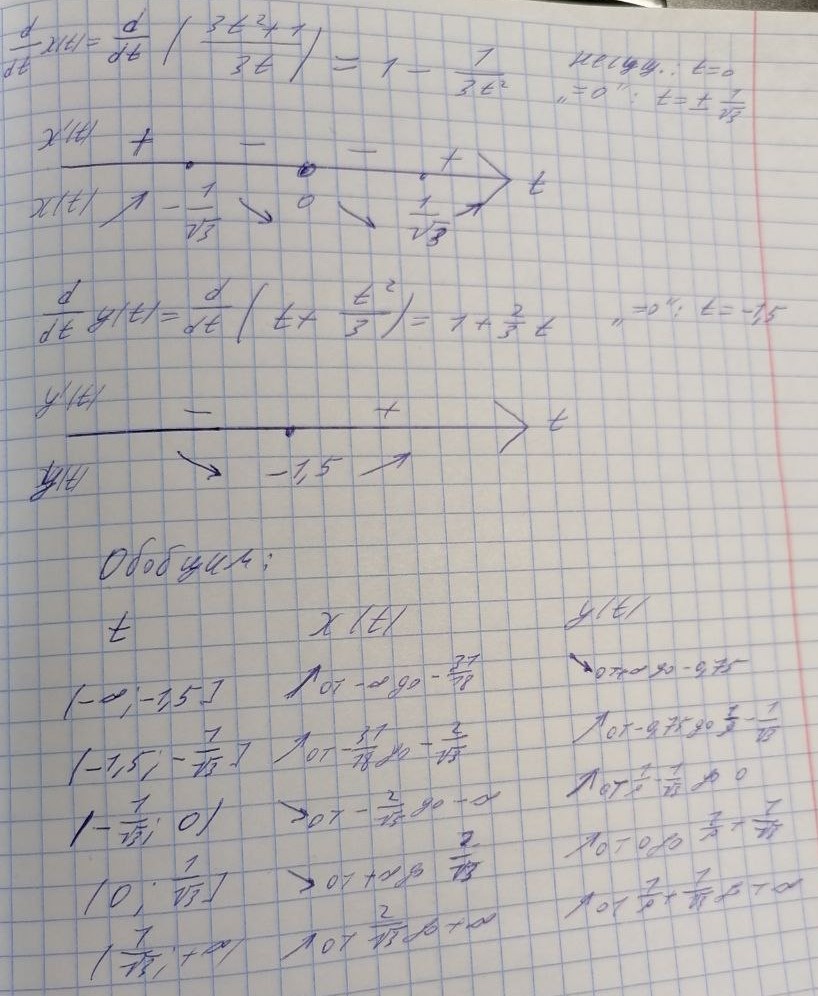 d/dt x(t) = d/dt ((3t²+1)/(3t)) = 1 - 1/(3t²) несущ.: t=0
"=0": t=±1/√3
x'(t) + - - + t
x(t) ↗ -1/√3 ↘ 0 ↘ 1/√3 ↗
d/dt y(t) = d/dt (t + t²/3) = 1 + 2/3 t "=0": t=-1,5
y'(t) - + t
y(t) ↘ -1,5 ↗
Обобщим:
t x(t) y(t)
(-∞;-1,5] ↗ от -∞ до -31/18 ↘ от +∞ до -0,75
(-1,5; -1/√3] ↗ от -31/18 до -2/√3 ↗ от -0,75 до 1/9 - 1/√3
(-1/√3; 0) ↘ от -2/√3 до -∞ ↗ от 1/9 - 1/√3 до 0
(0; 1/√3] ↘ от +∞ до 2/√3 ↗ от 0 до 1/9 + 1/√3
(1/√3; +∞) ↗ от 2/√3 до +∞ ↗ от 1/9 + 1/√3 до +∞